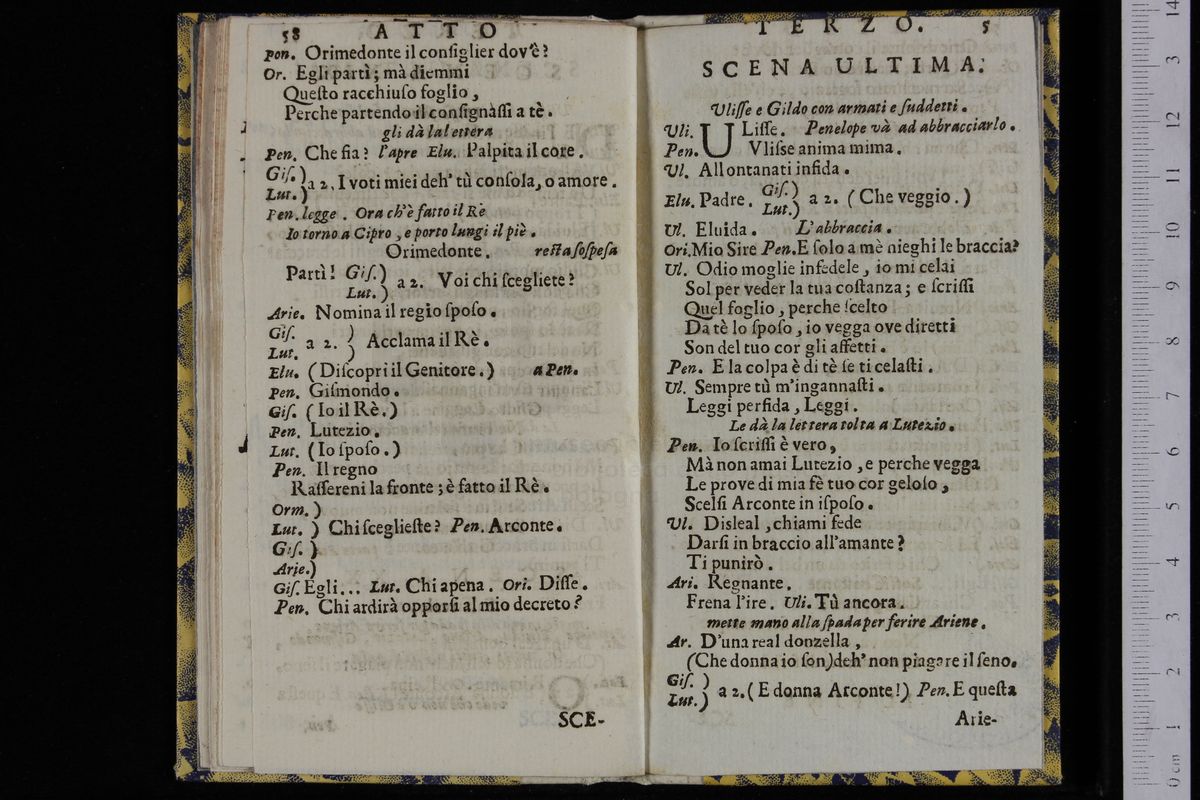 58 ATTO
Pen. Orimedonte il conſiglier dov'è?
Or. Egli partì; mà diemmi
Queſto racchiuſo foglio,
Perche partendo il conſignàſſi a tè.
gli dà la lettera
Pen. Che fia? l'apre Elu. Palpita il core.
Giſ.)
Lut.) a 2. I voti miei deh' tù conſola, o amore.
Pen. legge. Ora ch'è fatto il Rè
Io torno a Cipro, e porto lungi il piè.
Orimedonte. reſta ſoſpeſa
Partì! Giſ.)
Lut.) a 2. Voi chi ſcegliete?
Arie. Nomina il regio ſpoſo.
Giſ. )
Lut. a 2. ) Acclama il Rè.
Elu. (Diſcopri il Genitore.) a Pen.
Pen. Giſmondo.
Giſ. (Io il Rè.)
Pen. Lutezio.
Lut. (Io ſpoſo.)
Pen. Il regno
Raſſereni la fronte; è fatto il Rè.
Orm.)
Lut. ) Chi ſceglieſte? Pen. Arconte.
Giſ. )
Arie.)
Giſ. Egli... Lut. Chi apena. Ori. Diſſe.
Pen. Chi ardirà opporſi al mio decreto?
SCE-
TERZO. 5
SCENA ULTIMA.
Uliſſe e Gildo con armati e ſuddetti.
Uli. ULiſſe. Penelope và ad abbracciarlo.
Pen. Vliſse anima mima.
Ul. Allontanati infida.
Elu. Padre. Giſ.)
Lut.) a 2. (Che veggio.)
Ul. Eluida. L'abbraccia.
Ori. Mio Sire Pen. E ſolo a mè nieghi le braccia?
Ul. Odio moglie infedele, io mi celai
Sol per veder la tua coſtanza; e ſcriſſi
Quel foglio, perche ſcelto
Da tè lo ſpoſo, io vegga ove diretti
Son del tuo cor gli affetti.
Pen. E la colpa è di tè ſe ti celaſti.
Ul. Sempre tù m'ingannaſti.
Leggi perfida, Leggi.
Le dà la lettera tolta a Lutezio.
Pen. Io ſcriſſi è vero,
Mà non amai Lutezio, e perche vegga
Le prove di mia fè tuo cor geloſo,
Scelſi Arconte in iſpoſo.
Ul. Disleal, chiami fede
Darſi in braccio all'amante?
Ti punirò.
Ari. Regnante.
Frena l'ire. Uli. Tù ancora.
mette mano alla ſpada per ferire Ariene.
Ar. D'una real donzella,
(Che donna io ſon) deh' non piagare il ſeno.
Giſ. )
Lut.) a 2. (E donna Arconte!) Pen. E queſta
Arie-